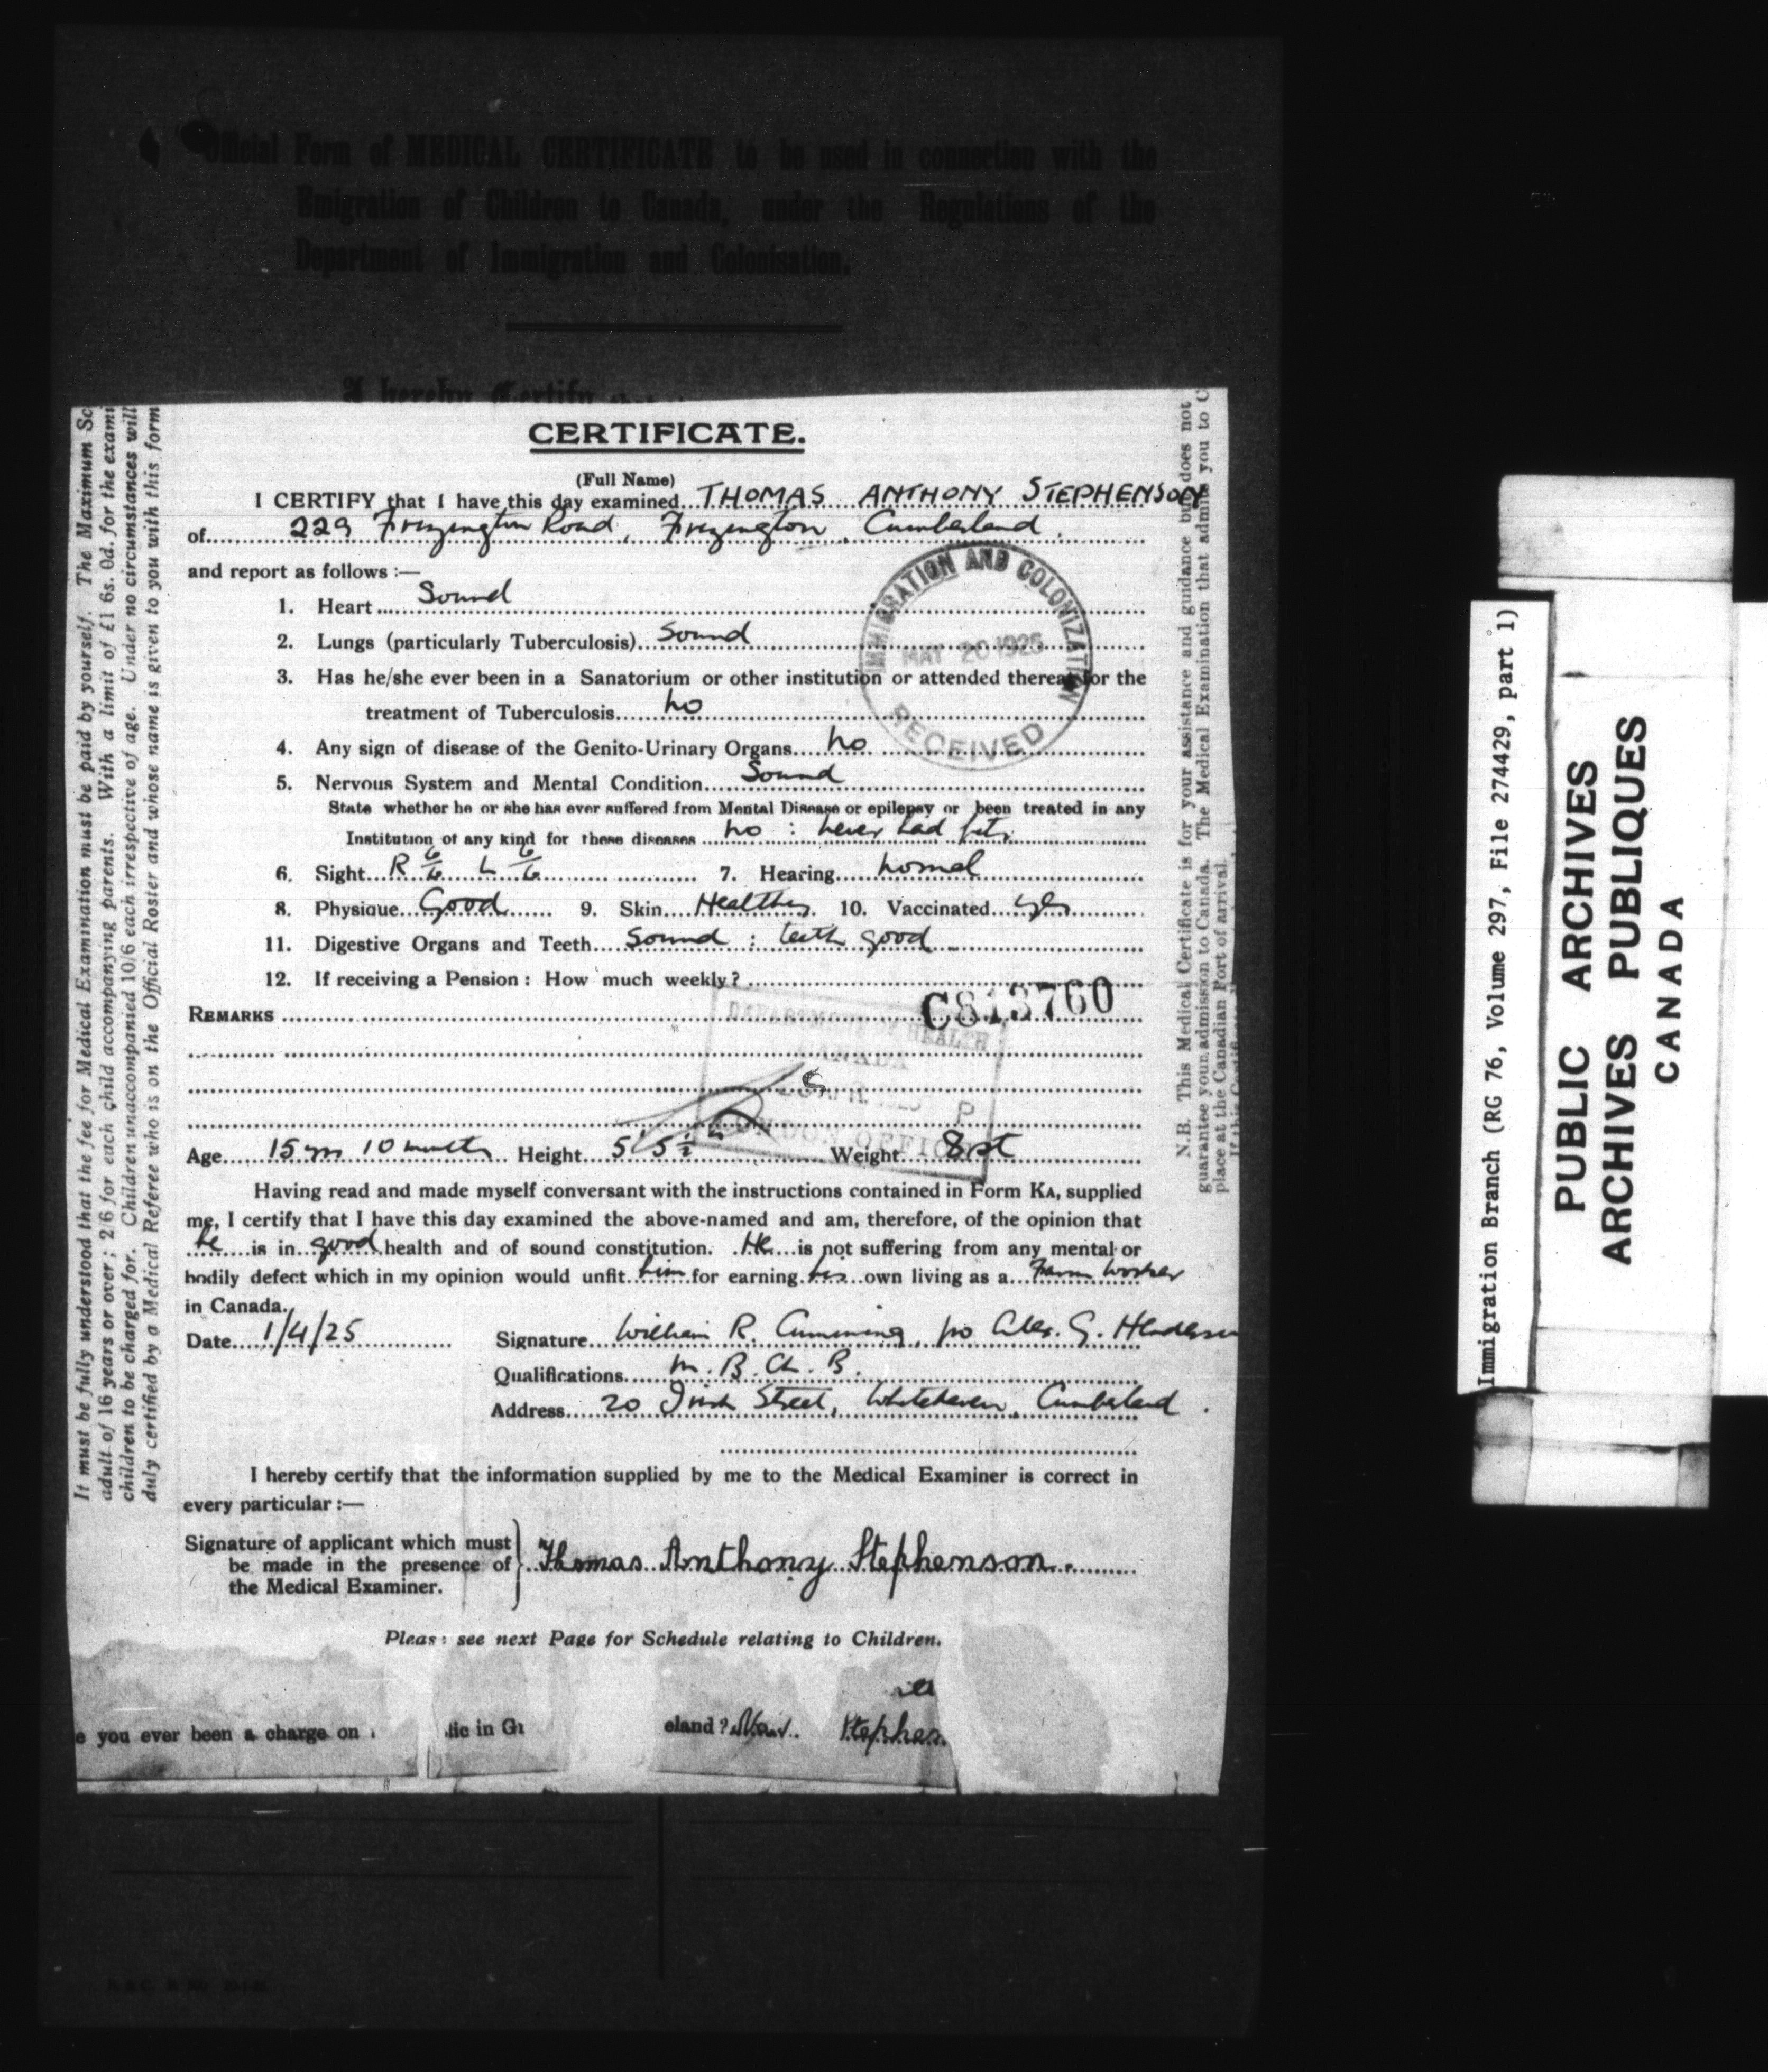 Official Form of MEDICAL CERTIFICATE to be used in connection with the
Emigration of Children to Canada, under the Regulations of the
Department of Immigration and Colonisation.
I hereby Certify that
CERTIFICATE.
(Full Name)
I CERTIFY that I have this day examined THOMAS ANTHONY STEPHENSON
of 229 Frizington Road, Frizington, Cumberland.
and report as follows :—
1. Heart Sound
2. Lungs (particularly Tuberculosis) Sound
3. Has he/she ever been in a Sanatorium or other institution or attended thereat for the
treatment of Tuberculosis No
4. Any sign of disease of the Genito-Urinary Organs No
5. Nervous System and Mental Condition Sound
State whether he or she has ever suffered from Mental Disease or epilepsy or been treated in any
Institution of any kind for these diseases No : never had fits.
6. Sight R 6/6 L 6/6 7. Hearing Normal
8. Physique Good 9. Skin Healthy 10. Vaccinated Yes
11. Digestive Organs and Teeth Sound : teeth good
12. If receiving a Pension : How much weekly ?
REMARKS
C813760
Age 15 yrs 10 months Height 5' 5½" Weight 8 st
Having read and made myself conversant with the instructions contained in Form KA, supplied
me, I certify that I have this day examined the above-named and am, therefore, of the opinion that
he is in good health and of sound constitution. He is not suffering from any mental or
bodily defect which in my opinion would unfit him for earning his own living as a Farm Worker
in Canada.
Date 1/4/25 Signature William R. Cumming, pro Alex. G. Henderson
Qualifications M. B. Ch. B.
Address 20 Irish Street, Whitehaven, Cumberland.
I hereby certify that the information supplied by me to the Medical Examiner is correct in
every particular :—
Signature of applicant which must
be made in the presence of
the Medical Examiner.
Thomas Anthony Stephenson.
Please see next Page for Schedule relating to Children.
e you ever been a charge on
lic in G
eland ? Stephen
IMMIGRATION AND COLONIZATION
MAY 20 1925
RECEIVED
DEPARTMENT OF HEALTH
CANADA
LONDON OFFICE
It must be fully understood that the fee for Medical Examination must be paid by yourself. The Maximum Sc
adult of 16 years or over ; 2/6 for each child accompanying parents. With a limit of £1 6s. 0d. for the exami
children to be charged for. Children unaccompanied 10/6 each irrespective of age. Under no circumstances will
duly certified by a Medical Referee who is on the Official Roster and whose name is given to you with this form
N.B. This Medical Certificate is for your assistance and guidance but does not
guarantee your admission to Canada. The Medical Examination that admits you to C
place at the Canadian Port of arrival.
Immigration Branch (RG 76, Volume 297, File 274429, part 1)
PUBLIC ARCHIVES
ARCHIVES PUBLIQUES
CANADA